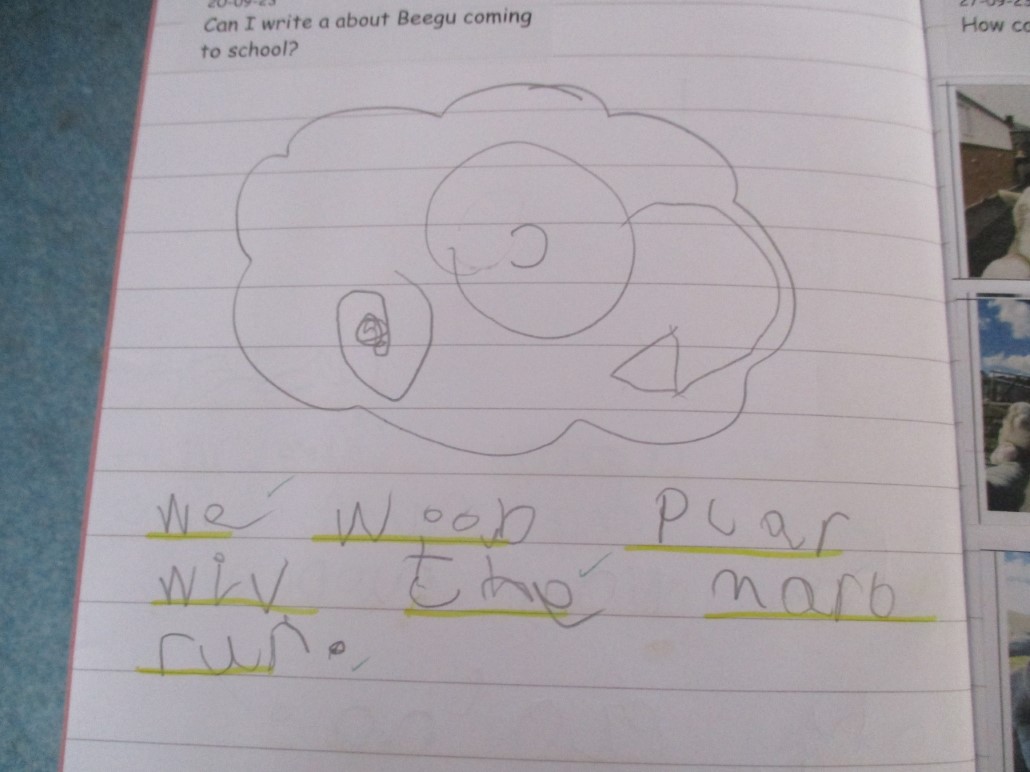 20-09-23
Can I write a about Beegu coming
to school?
27-09-23
How co
we woob Plar
wiv the narb
run.